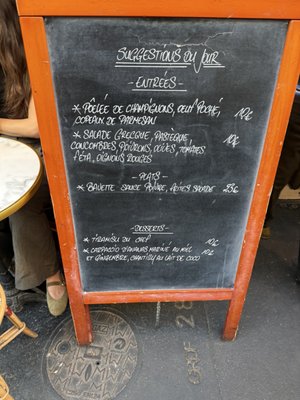 Suggestions du jour
- Entrées -
* Poêlée de champignons, oeuf poché, 10€
copeaux de parmesan
* Salade grecque, pastèque, 10€
concombres, poivrons, olives, tomates,
féta, oignons rouges
- Plats -
* Bavette sauce poivre, frites salade 23€
- Desserts -
* Tiramisu du chef 10€
* Carpaccio d'ananas mariné au miel 10€
et gingembre, chantilly au lait de coco